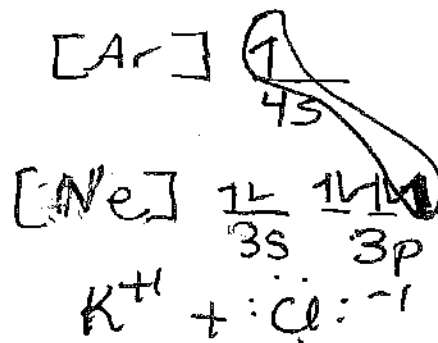 [Ar] 1
4s
[Ne] 1L 1L 1L 1
3s 3p
K+1 + :Cl: -1